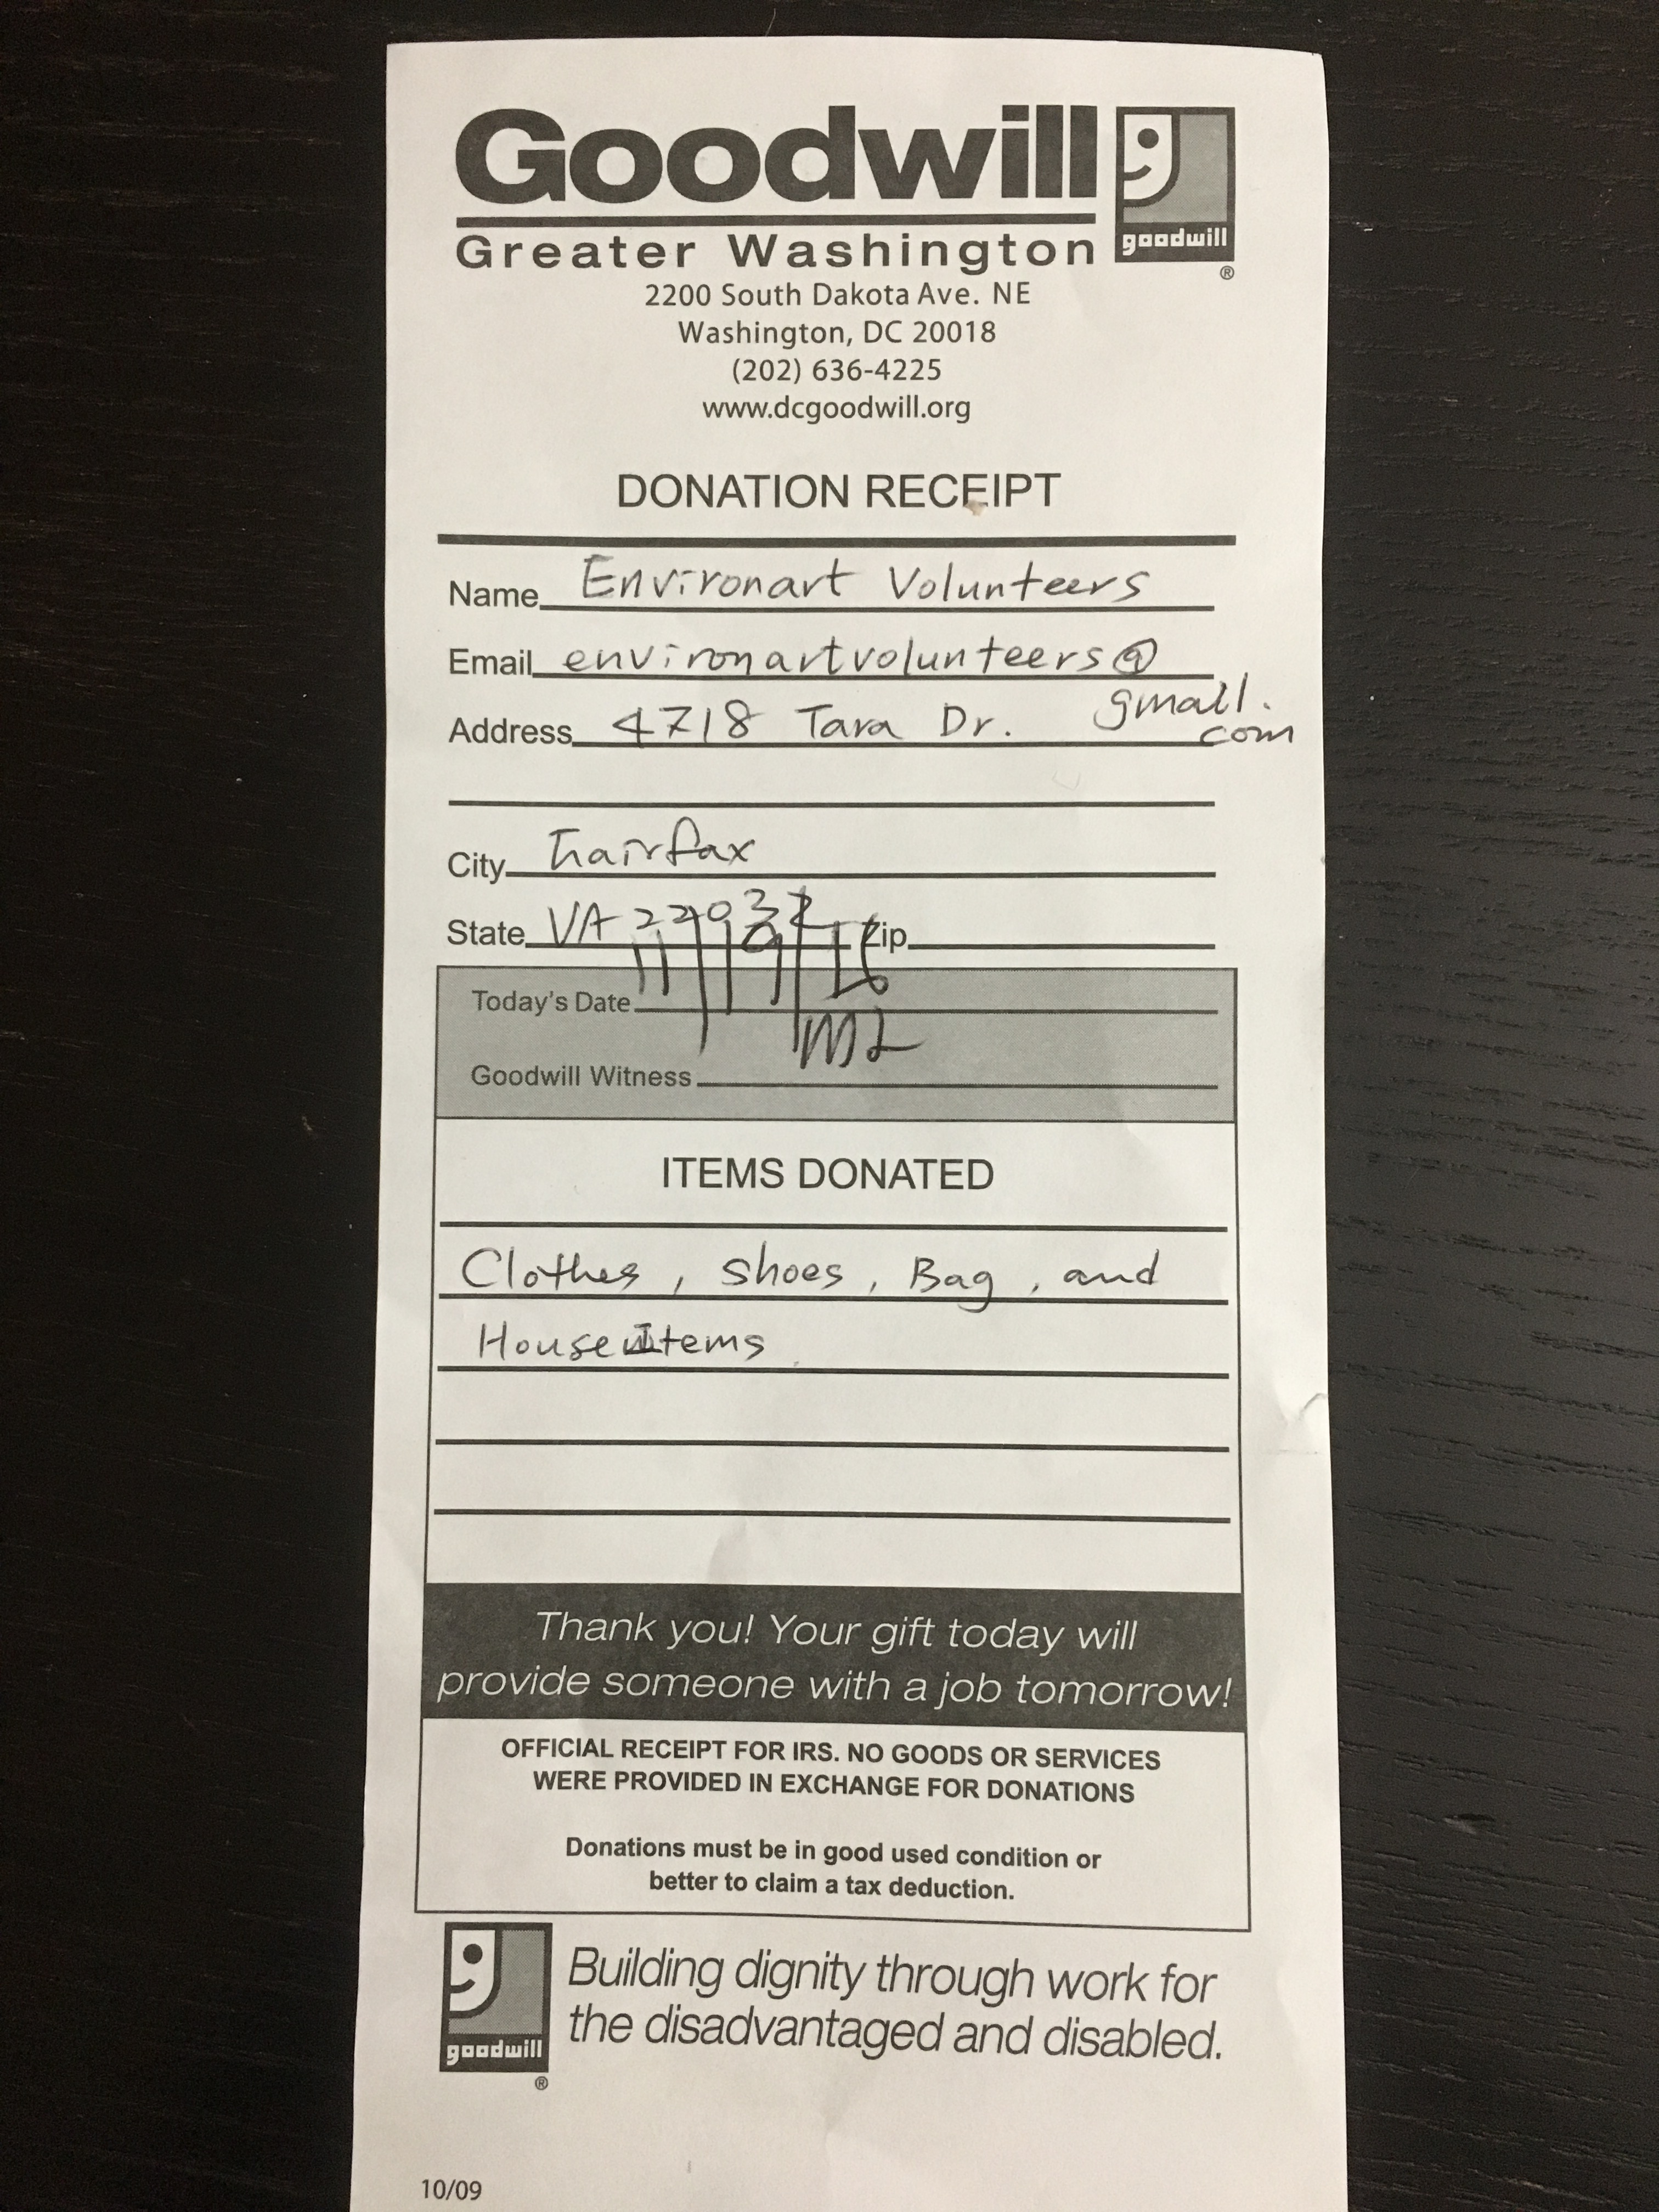 Goodwill
goodwill
®
Greater Washington
2200 South Dakota Ave. NE
Washington, DC 20018
(202) 636-4225
www.dcgoodwill.org
DONATION RECEIPT
Name Environart Volunteers
Email environartvolunteers@
gmail.
com
Address 4718 Tara Dr.
City Fairfax
State VA 22032 Zip
Today's Date 11/19/16
Goodwill Witness ML
ITEMS DONATED
Clothes, Shoes, Bag, and
House Items
Thank you! Your gift today will
provide someone with a job tomorrow!
OFFICIAL RECEIPT FOR IRS. NO GOODS OR SERVICES
WERE PROVIDED IN EXCHANGE FOR DONATIONS
Donations must be in good used condition or
better to claim a tax deduction.
goodwill
®
Building dignity through work for
the disadvantaged and disabled.
10/09